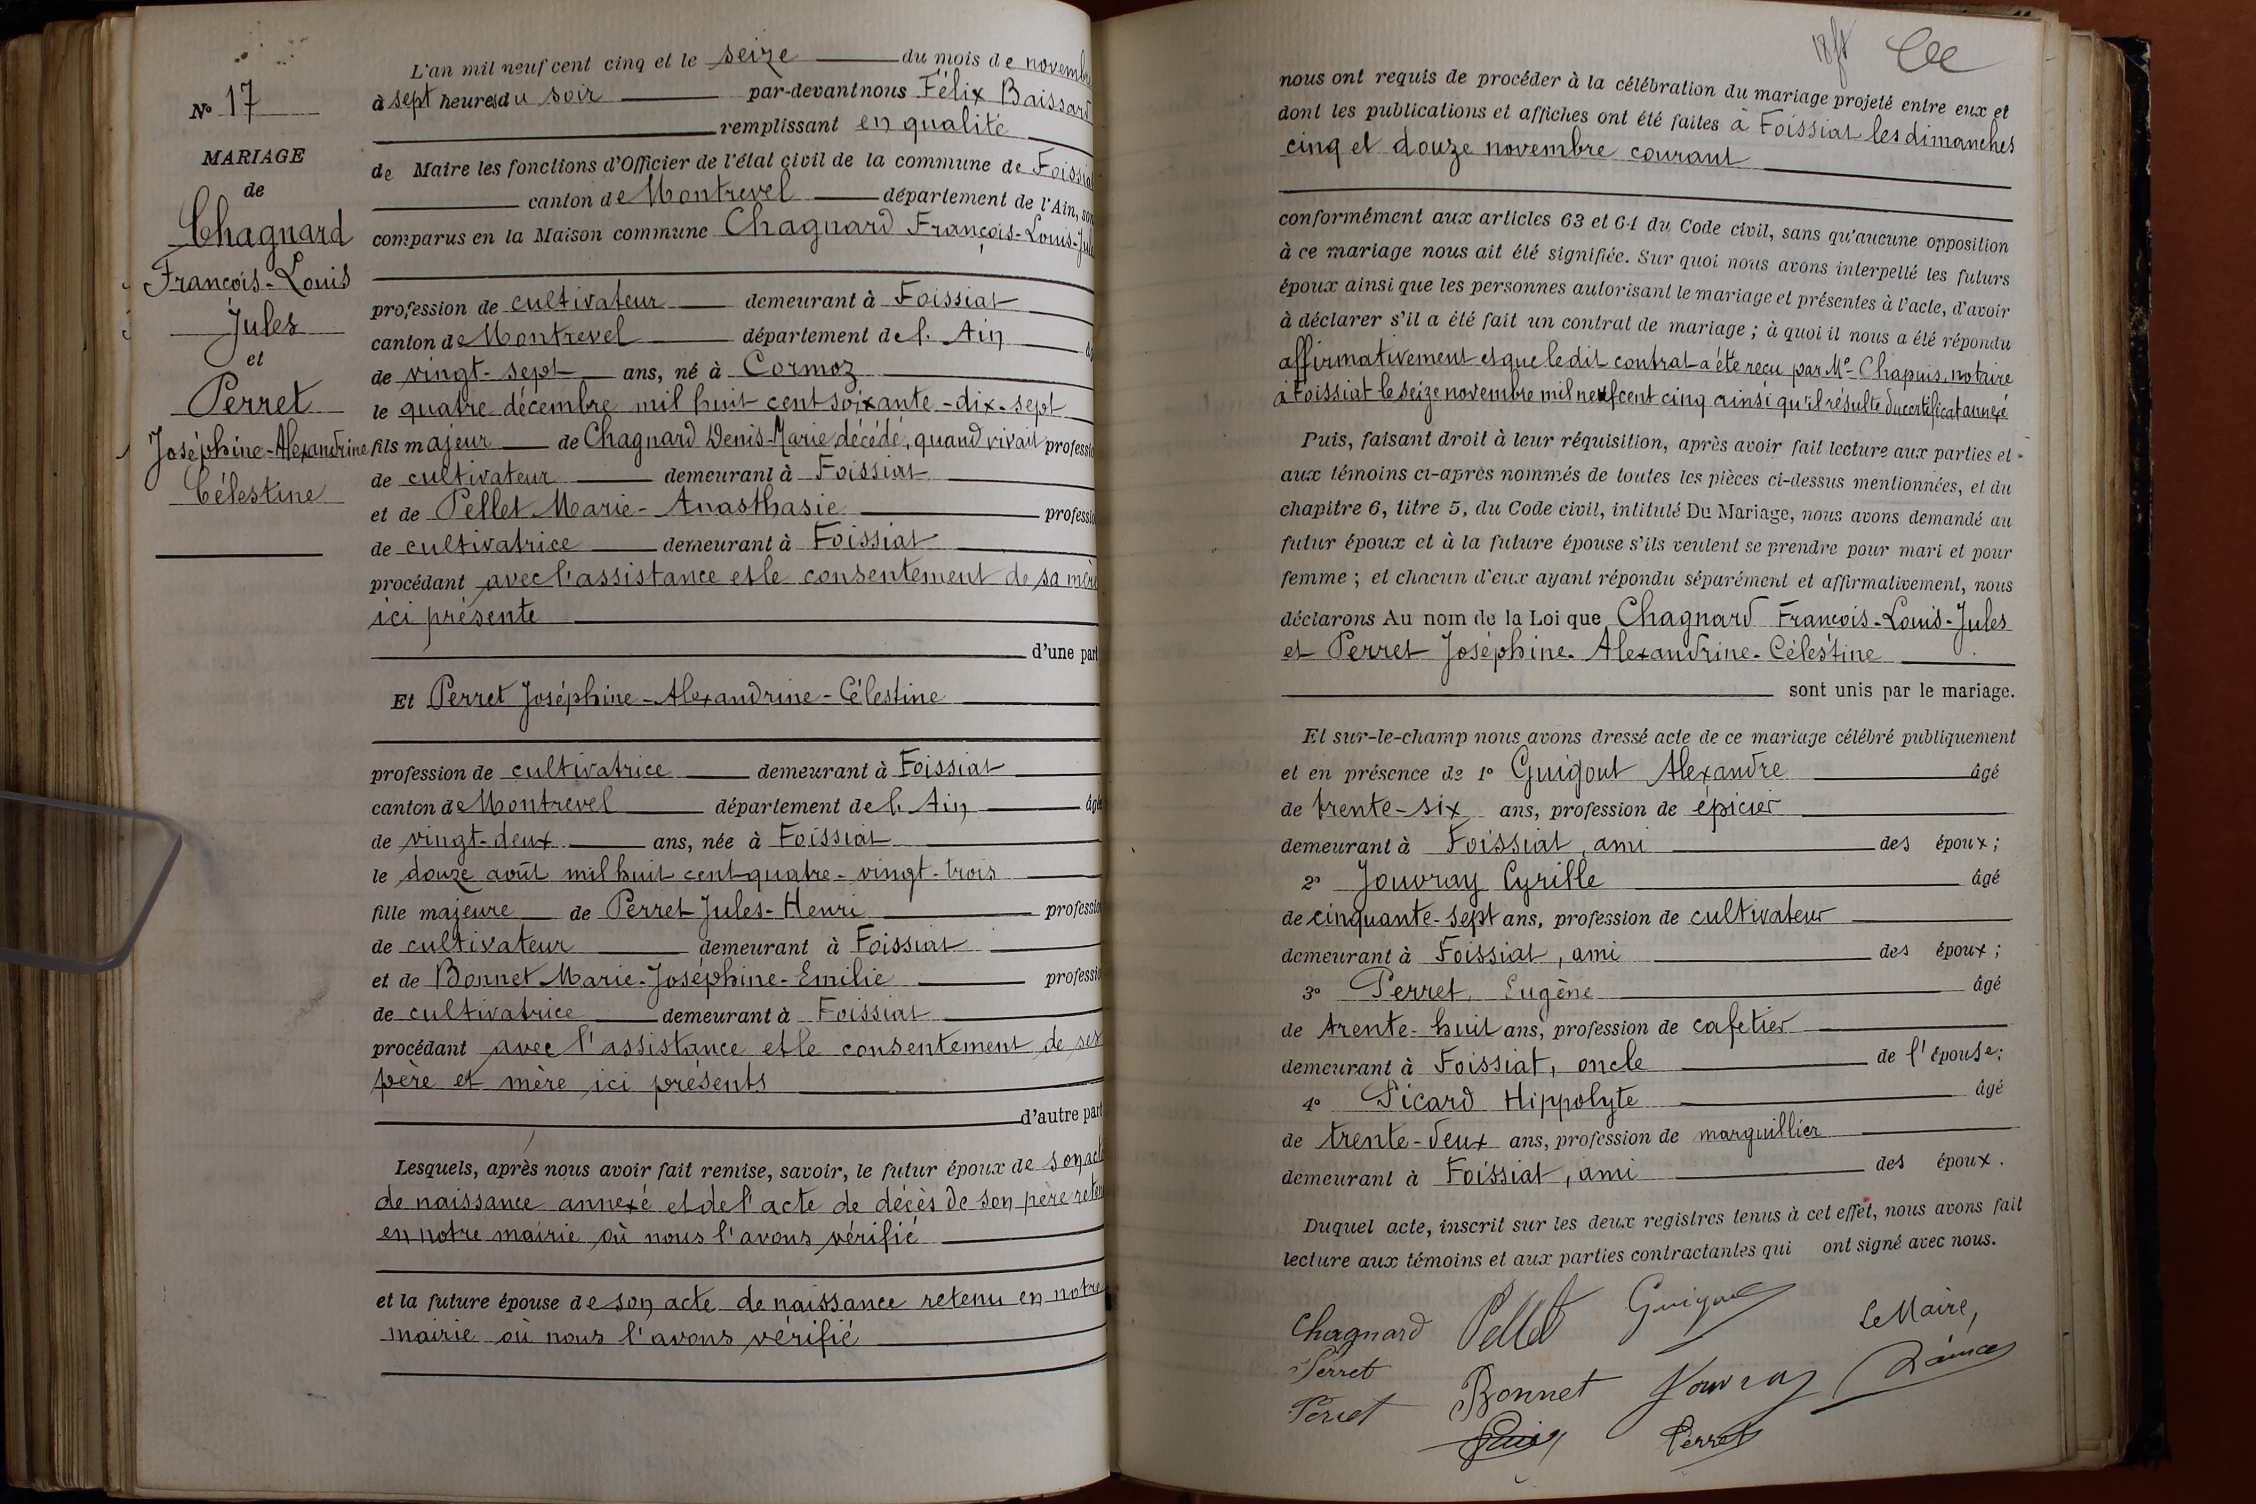 N° 17
MARIAGE
de
Chagnard
François-Louis
Jules
et
Perret
Joséphine-Alexandrine
Célestine
L'an mil neuf cent cinq et le seize du mois de novembre
à sept heures du soir par-devant nous Félix Baissard
remplissant en qualité
de Maire les fonctions d'Officier de l'état civil de la commune de Foissiat
canton de Montrevel département de l'Ain, sont
comparus en la Maison commune Chagnard François-Louis-Jules
profession de cultivateur demeurant à Foissiat
canton de Montrevel département de l'Ain
de vingt-sept ans, né à Cormoz
le quatre décembre mil huit cent soixante-dix-sept
fils majeur de Chagnard Denis-Marie décédé, quand vivait profession
de cultivateur demeurant à Foissiat
et de Pellet Marie-Anasthasie profession
de cultivatrice demeurant à Foissiat
procédant avec l'assistance et le consentement de sa mère
ici présente
d'une part
Et Perret Joséphine-Alexandrine-Célestine
profession de cultivatrice demeurant à Foissiat
canton de Montrevel département de l'Ain âgée
de vingt-deux ans, née à Foissiat
le douze août mil huit cent quatre-vingt-trois
fille majeure de Perret Jules-Henri profession
de cultivateur demeurant à Foissiat
et de Bonnet Marie-Joséphine-Emilie profession
de cultivatrice demeurant à Foissiat
procédant avec l'assistance et le consentement de ses
père et mère ici présents
d'autre part
Lesquels, après nous avoir fait remise, savoir, le futur époux de son acte
de naissance annexé et de l'acte de décès de son père retenu
en notre mairie où nous l'avons vérifié
et la future épouse de son acte de naissance retenu en notre
mairie où nous l'avons vérifié
nous ont requis de procéder à la célébration du mariage projeté entre eux et
dont les publications et affiches ont été faites à Foissiat les dimanches
cinq et douze novembre courant
conformément aux articles 63 et 64 du Code civil, sans qu'aucune opposition
à ce mariage nous ait été signifiée. Sur quoi nous avons interpellé les futurs
époux ainsi que les personnes autorisant le mariage et présentes à l'acte, d'avoir
à déclarer s'il a été fait un contrat de mariage ; à quoi il nous a été répondu
affirmativement et que ledit contrat a été reçu par Me Chapuis, notaire
à Foissiat le seize novembre mil neuf cent cinq ainsi qu'il résulte du certificat annexé
Puis, faisant droit à leur réquisition, après avoir fait lecture aux parties et
aux témoins ci-après nommés de toutes les pièces ci-dessus mentionnées, et du
chapitre 6, titre 5, du Code civil, intitulé Du Mariage, nous avons demandé au
futur époux et à la future épouse s'ils veulent se prendre pour mari et pour
femme ; et chacun d'eux ayant répondu séparément et affirmativement, nous
déclarons Au nom de la Loi que Chagnard François-Louis-Jules
et Perret Joséphine-Alexandrine-Célestine
sont unis par le mariage.
Et sur-le-champ nous avons dressé acte de ce mariage célébré publiquement
et en présence de 1° Guigout Alexandre âgé
de trente-six ans, profession de épicier
demeurant à Foissiat, ami des époux ;
2° Jouvray Cyrille âgé
de cinquante-sept ans, profession de cultivateur
demeurant à Foissiat, ami des époux ;
3° Perret Eugène âgé
de trente-huit ans, profession de cafetier
demeurant à Foissiat, oncle de l'épouse ;
4° Picard Hippolyte âgé
de trente-deux ans, profession de marguillier
demeurant à Foissiat, ami des époux.
Duquel acte, inscrit sur les deux registres tenus à cet effet, nous avons fait
lecture aux témoins et aux parties contractantes qui ont signé avec nous.
Chagnard Pellet Guigout Le Maire,
Perret Bonnet Jouvray
Perret Perret